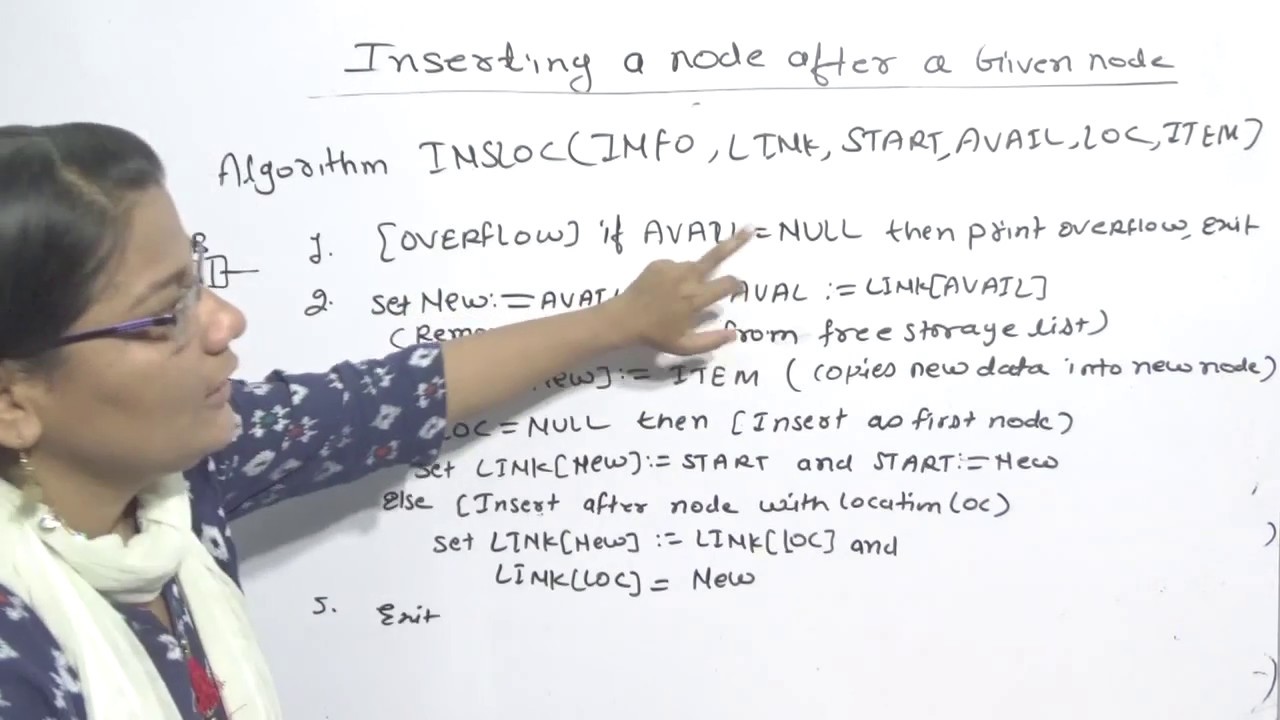 Inserting a node after a Given node
Algorithm INSLOC(INFO, LINK, START, AVAIL, LOC, ITEM)
1. [OVERFLOW] if AVAIL = NULL then print overflow, exit
2. set New:=AVAIL AVAL := LINK[AVAIL]
from free storage list)
New]:= ITEM (copies new data into new node)
LOC = NULL then [Insert as first node)
set LINK[New]:= START and START:= New
Else [Insert after node with location LOC)
set LINK[New] := LINK[LOC] and
LINK[LOC] = New
5. Exit